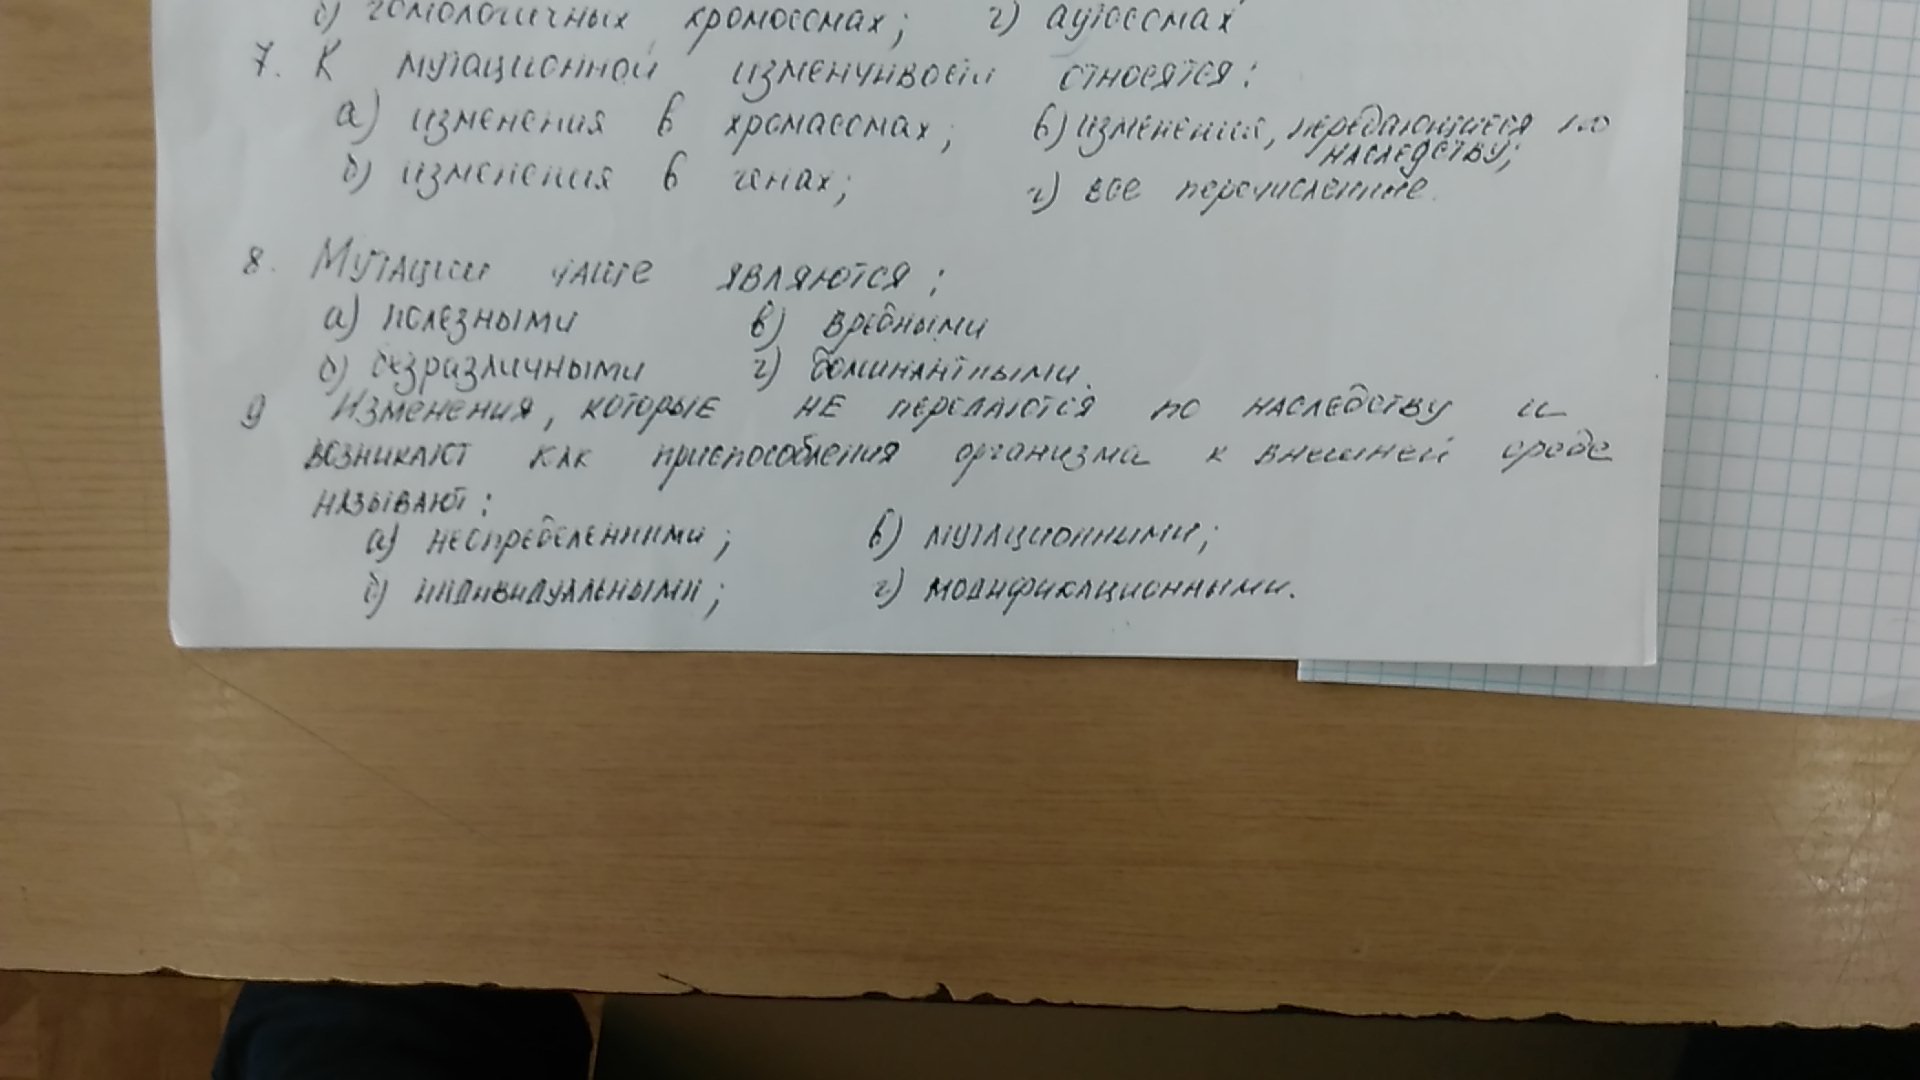 б) гомологичных хромоссмах; г) аутоссмах
7. К мутационной изменчивости относятся:
а) изменения в хромассмах; в) изменения, передающиеся по
наследству;
б) изменения в генах; г) все перечисленные.
8. Мутации чаще являются:
а) полезными в) вредными
б) безразличными г) доминантными.
9 Изменения, которые не передаются по наследству и
возникают как приспособления организма к внешней среде
называют:
а) неопределенными; в) мутационными;
б) индивидуальными; г) модификационными.